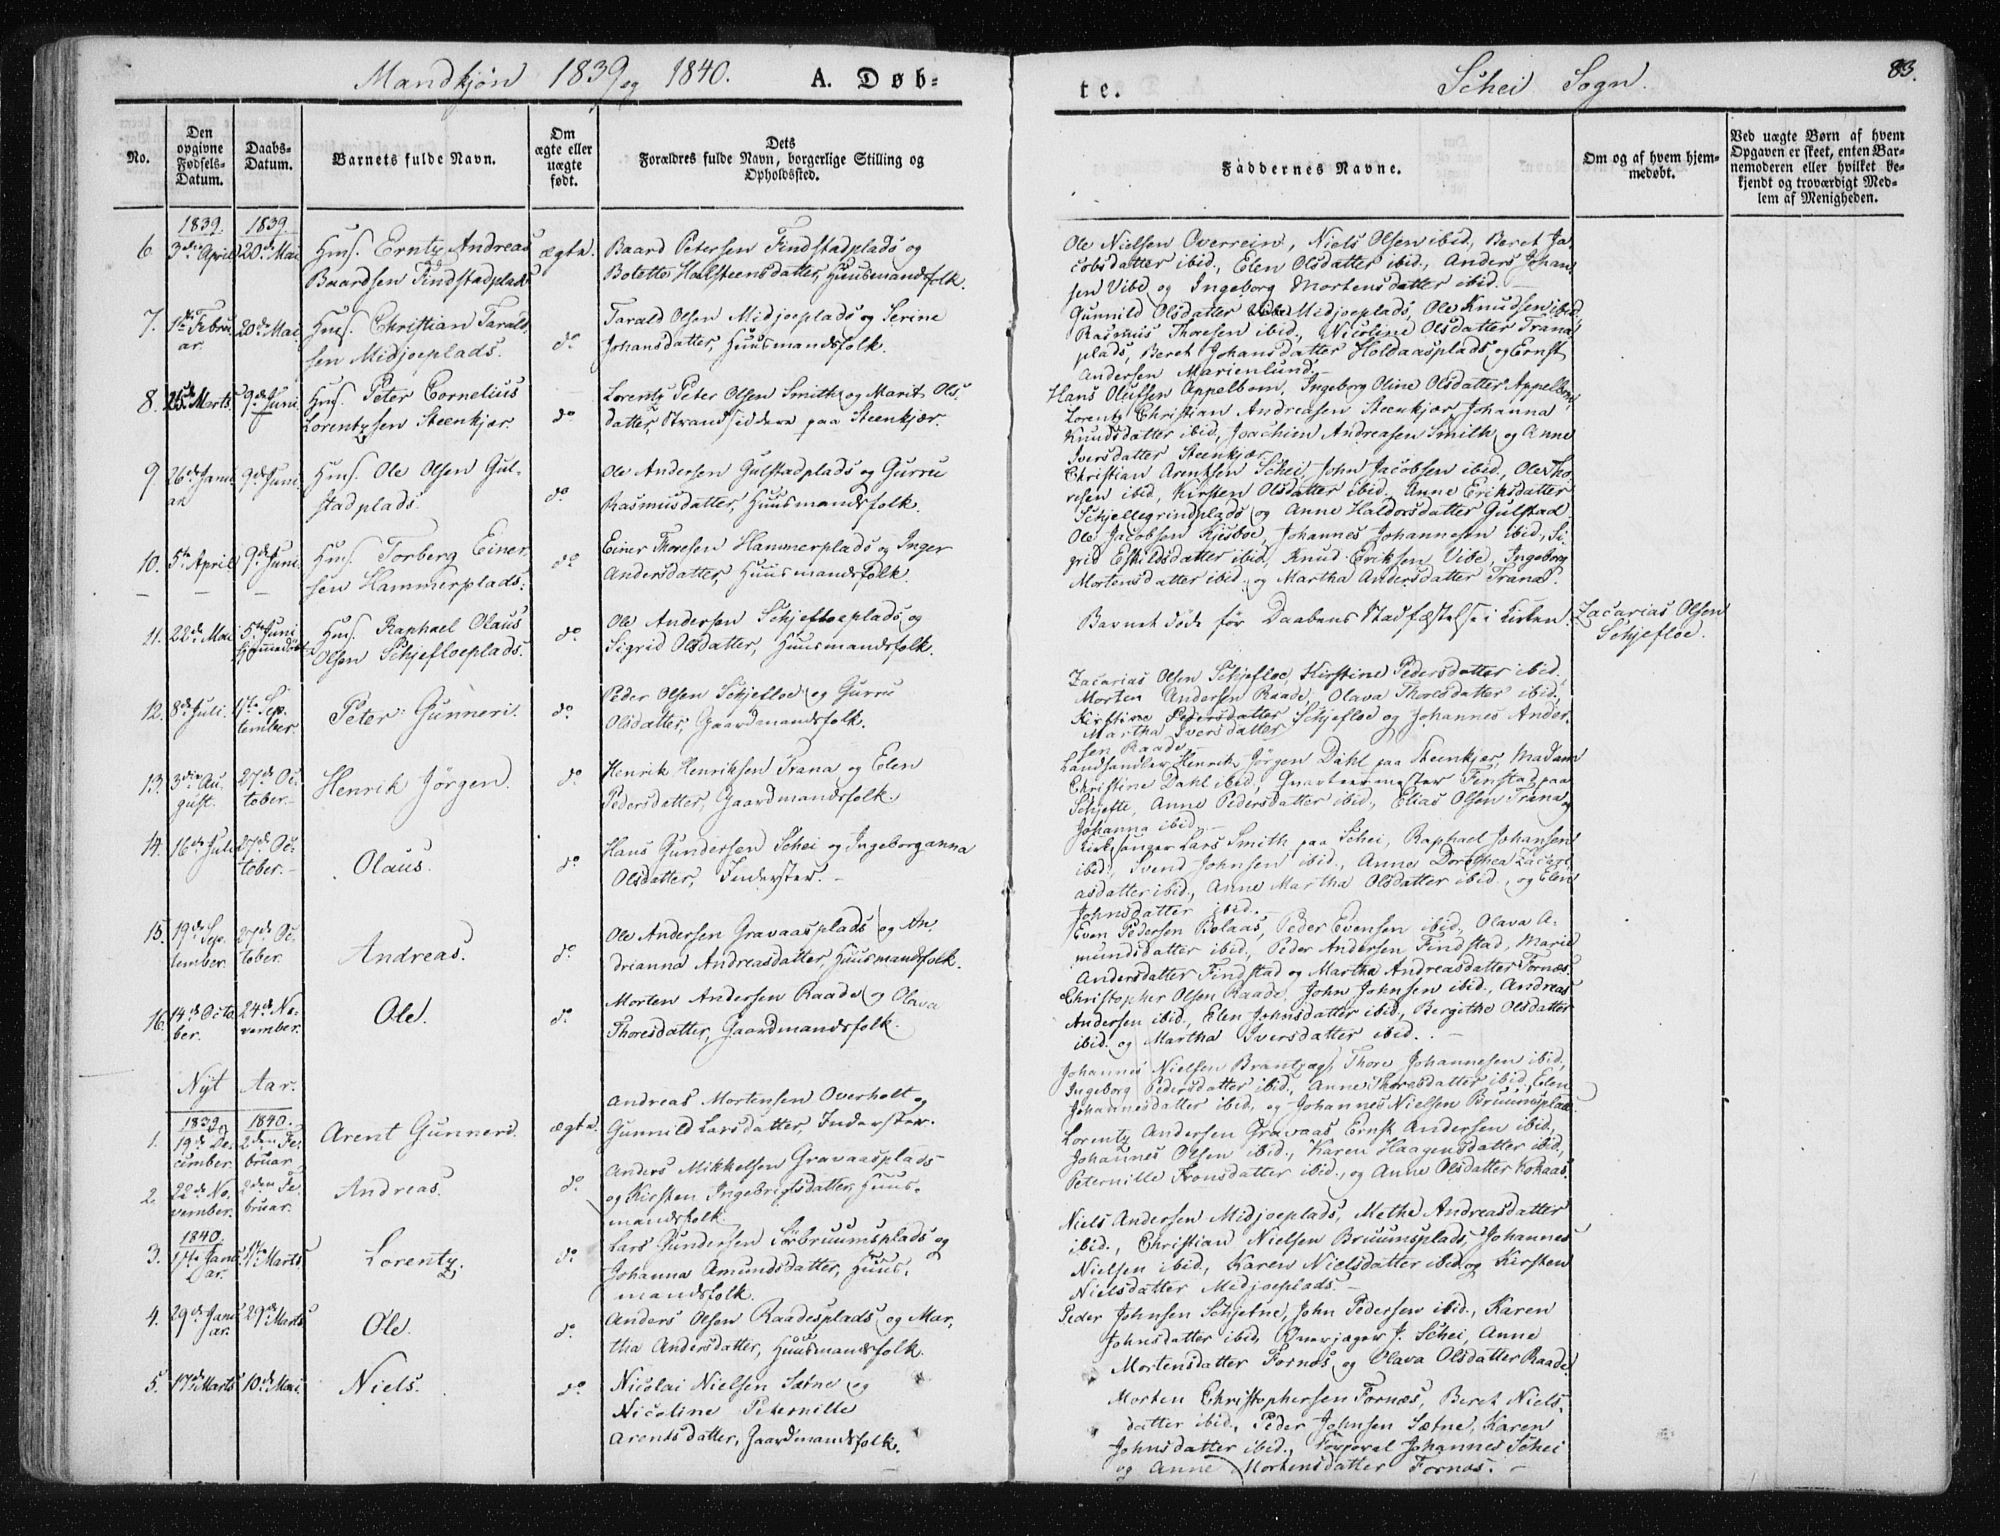 Mandkjøn 1839 og 1840. A. Døb-
te. Schei Sogn. 83.
No.
Den opgivne Fødsels-Datum.
Daabs-Datum.
Barnets fulde Navn.
Om ægte eller uægte født.
Dets
Forældres fulde Navn, borgerlige Stilling og
Opholdssted.
Faddernes Navne.
Om og af hvem hjem-
medøbt.
Ved uægte Børn af hvem
Opgaven er skeet, enten Bar-
nemoderen eller hvilket be-
kjendt og troværdigt Med-
lem af Menigheden.
1839. 1839.
6. 3die April 20de Mai Hms. Erntz Andreas ægte. Baard Petersen Findstadplads og
Baardsen Findstadplads Bolette Halsteensdatter, Huusmandsfolk.
Ole Nielsen Overrein, Niels Olsen ibid., Beret Ja-
cobsdatter ibid., Elen Olsdatter ibid., Anders Johan-
sen Vibe og Ingeborg Mortensdatter ibid. –
7. 1ste Febru- 20de Mai Hms. Christian Tarald- do Tarald Olsen Midjoeplads og Serine
ar. sen Midjoeplads. Johansdatter, Huusmandsfolk.
Gunnild Olsdatter Midjoeplads, Ole Knudsen ibid.
Rasmus Thoresen ibid., Nicoline Olsdatter Trana-
plads, Beret Johansdatter Holdaasplads og Ernst
Andersen Marienlund. –
8. 25de Marts 9de Juni Hms. Peter Cornelius do Lorentz Peter Olsen Smith og Marit Ols-
Lorentzsen Steenkjær. datter, Strandsiddere paa Steenkjær.
Hans Olufsen Appelbom, Ingeborg Oline Olsdatter Appelbom,
Lorentz Christian Andreasen Steenkjær, Johanna
Knudsdatter ibid., Joachim Andreasen Smith og Anne
Iversdatter Steenkjær.
9. 26de Janu- 9de Juni Hms. Ole Olsen Gul- do Ole Andersen Gulstadplads og Gurru
ar stadplads. Rasmusdatter, Huusmandsfolk.
Christian Arentsen Schei, John Jacobsen ibid., Ole Tho-
resen ibid., Kirsten Olsdatter ibid., Anne Eriksdatter
Schjellegrindplads og Anne Haldorsdatter Gulstad.
10. 5te April 9de Juni Hms. Torberg Einer- do Einer Thoresen Hammerplads og Inger
sen Hammerplads. Andersdatter, Huusmandsfolk.
Ole Jacobsen Kjesboe, Johannes Johannesen ibid., Si-
grid Eskildsdatter ibid., Knud Eriksen Vibe, Ingeborg
Mortensdatter ibid. og Martha Andersdatter Trana.
11. 22de Mai 5te Juni Hms. Raphael Olaus do Ole Andersen Schjefloeplads og
hjemmedøbt Olsen Schjefloeplads. Sigrid Olsdatter, Huusmandsfolk.
Barnet døde før Daabens Stadfæstelse i Kirken. Zacarias Olsen
Schjefloe.
12. 8de Juli. 1ste Sep- Peter Gunneri. do Peder Olsen Schjefloe og Gurru
tember. Olsdatter, Gaardmandsfolk.
Zacarias Olsen Schjefloe, Kirstine Pedersdatter ibid.,
Morten Andersen Raade, Olava Thoresdatter ibid.
Kirstine Pedersdatter Schjefloe og Johannes Ander-
Martha Iversdatter
sen Raade –
13. 3die Au- 27de Oc- Henrik Jörgen. do Henrik Henriksen Trana og Elen
gust. tober. – Pedersdatter, Gaardmandsfolk.
Landhandler Henrik Jörgen Dahl paa Steenkjer, Madam
Christine Dahl ibid., Quarteermester Finstad paa
Schjefte, Anne Pedersdatter ibid., Elias Olsen Trana og
Johanna ibid. –
14. 16de Juli 27de Oc- Olaus. do Hans Gundersen Schei og Ingeborganna
tober. – Olsdatter, Inderster. –
Kirkesanger Lars Smith paa Schei, Raphael Johansen
ibid., Svend Johnsen ibid., Anne Dorothea Zacari-
asdatter ibid., Anne Martha Olsdatter ibid., og Elen
Johnsdatter ibid. –
15. 19de Sep- 27de Oc- Andreas. do Ole Andersen Gravaasplads og An-
tember. tober. drianna Andreasdatter, Huusmandsfolk.
Even Pedersen Bolaas, Peder Evensen ibid., Olava A-
mundsdatter ibid., Peder Andersen Findstad, Marie
Andersdatter Findstad og Martha Andreasdatter Fornæs.
16. 14de Octo- 24de No- Ole. do Morten Andersen Raade og Olava
ber. vember. Thoresdatter, Gaardmandsfolk.
Christopher Olsen Raade, John Johnsen ibid., Andreas
Andersen ibid., Elen Johnsdatter ibid., Bergithe Olsdatter
ibid. og Martha Iversdatter ibid. –
Nyt Aar.
1839. 1840.
1. 19de De- 2den Fe- Arent Gunneri. ægte. Andreas Mortensen Overholt og
cember bruar. Gunnild Larsdatter, Inderster.
Johannes Nielsen Brantzæg, Thore Johannesen ibid.,
Ingeborg Pedersdatter ibid., Anne Thoresdatter ibid., Elen
Johannesdatter ibid., og Johannes Nielsen Bruumsplads.
2. 22de No- 2den Fe- Andreas. do Anders Mikkelsen Gravaasplads
vember. bruar. og Kirsten Ingebrigtsdatter, Huus-
mandsfolk.
Lorentz Andersen Gravaas, Ernst Andersen ibid.,
Johannes Olsen ibid., Karen Haagensdatter ibid.,
Peternille Tronsdatter ibid., og Anne Olsdatter Kohaas.
1840.
3. 17de Janu- 1ste Marts Lorentz. do Lars Gundersen Sörbruumsplads og
ar. Johanna Amundsdatter, Huus-
mandsfolk.
Niels Andersen Midjoeplads, Methe Andreasdatter
ibid., Christian Nielsen Bruumsplads, Johannes
Nielsen ibid., Karen Nielsdatter ibid. og Kirsten
Nielsdatter Midjoeplads. –
4. 29de Janu- 29de Marts Ole. do Anders Olsen Raadesplads og Mar-
ar. tha Andersdatter, Huusmandsfolk.
Peder Johnsen Schjetne, John Pedersen ibid., Karen
Johnsdatter ibid., J. Schei, Anne
Mortensdatter Fornæs og Olava Olsdatter Raade
5. 17de Marts 10de Mai. Niels. do Nicolai Nielsen Sætne og
Nicoline Peternille
Arentsdatter, Gaardmandsfolk.
Morten Christophersen Fornæs, Beret Niels-
datter ibid., Peder Johnsen Sætne, Karen
Johnsdatter ibid., Johannes Schei
og Anne Mortensdatter Fornæs. –